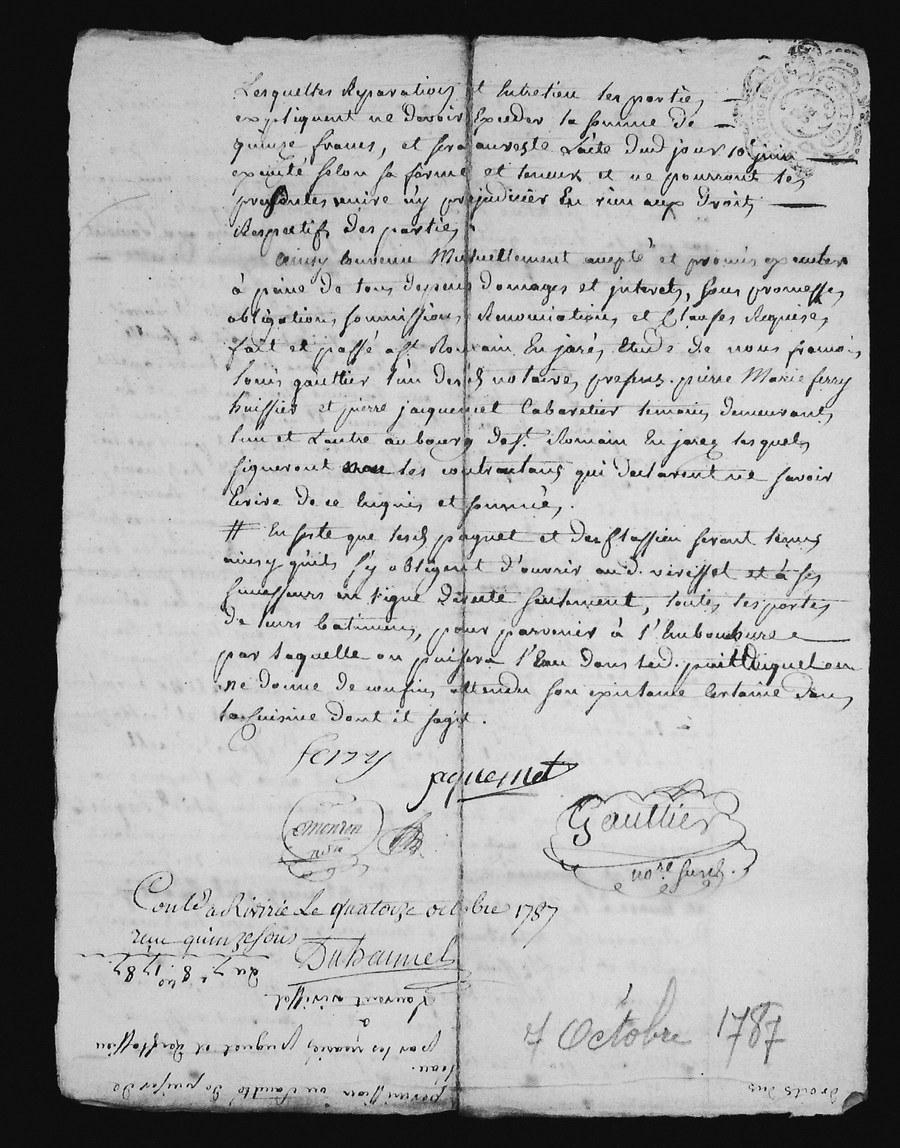 Lesquelles Reparations et Entretien les parties
expliquent ne devoir Exceder la somme de
quinze francs, et sera aureste L'acte dud jour 10 juin
executé selon sa forme et teneur et ne pourront les
presentes nuire ny prejudicier En rien aux Droits
Respectifs des parties.
ainsy Convenu Mutuellement accepté et promis executer
à peine de tous depens domages et interets, sous promesses
obligations soumissions Renonciations et Clauses Requises
fait et passé a St. Romain En jarés Etude de nous françois
Louis gaultier L'un desd notaires, presens pierre Marie ferry
huissier et pierre jacquemet Cabaretier temoins demeurants
L'un et L'autre au bourg de St. Romain En jarez lesquels
signeront non les contractans qui declarent ne savoir
Ecrire de ce Enquis et sommés.
# En sorte que lesd paquet et dessflassieu seront tenus
ainsy qu'ils s'y obligent d'ouvrir aud. virissel et à ses
successeurs en Ligne Directe seulement, toutes les portes
de leurs batimens, pour parvenir à l'Embouchure
par laquelle on puisera l'Eau dans led. puit duquel on
ne donne de confins attendu son existance Certaine dans
la Cuisine dont il sagit.
ferry
jaquemet
Gaultier
no.re
Contl a Riverie Le quatorze octobre 1787
reçu quinze sous
Duhamel
7 Octobre 1787
du 7 8bre 1787.
permission ou faculté de puiser de
l'eau.
par les mariés paquet et dessflassieu
à
Laurent virissel.
droits dus